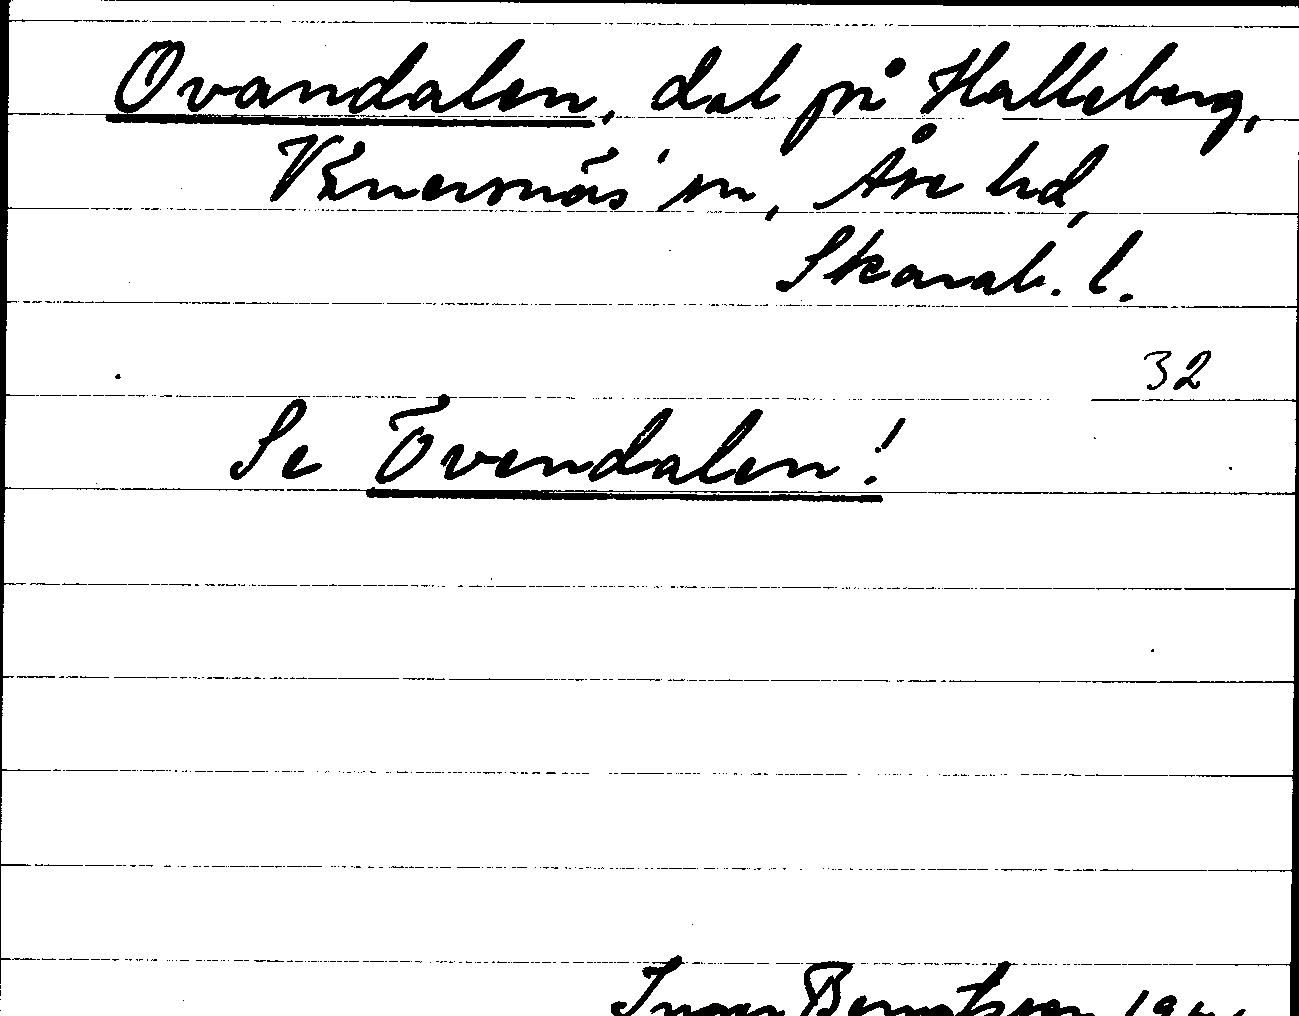 Ovandalen, dal på Halleberg,
Vänersnäs' sn, Åse hd,
Skarab. l.
32
Se Övendalen!